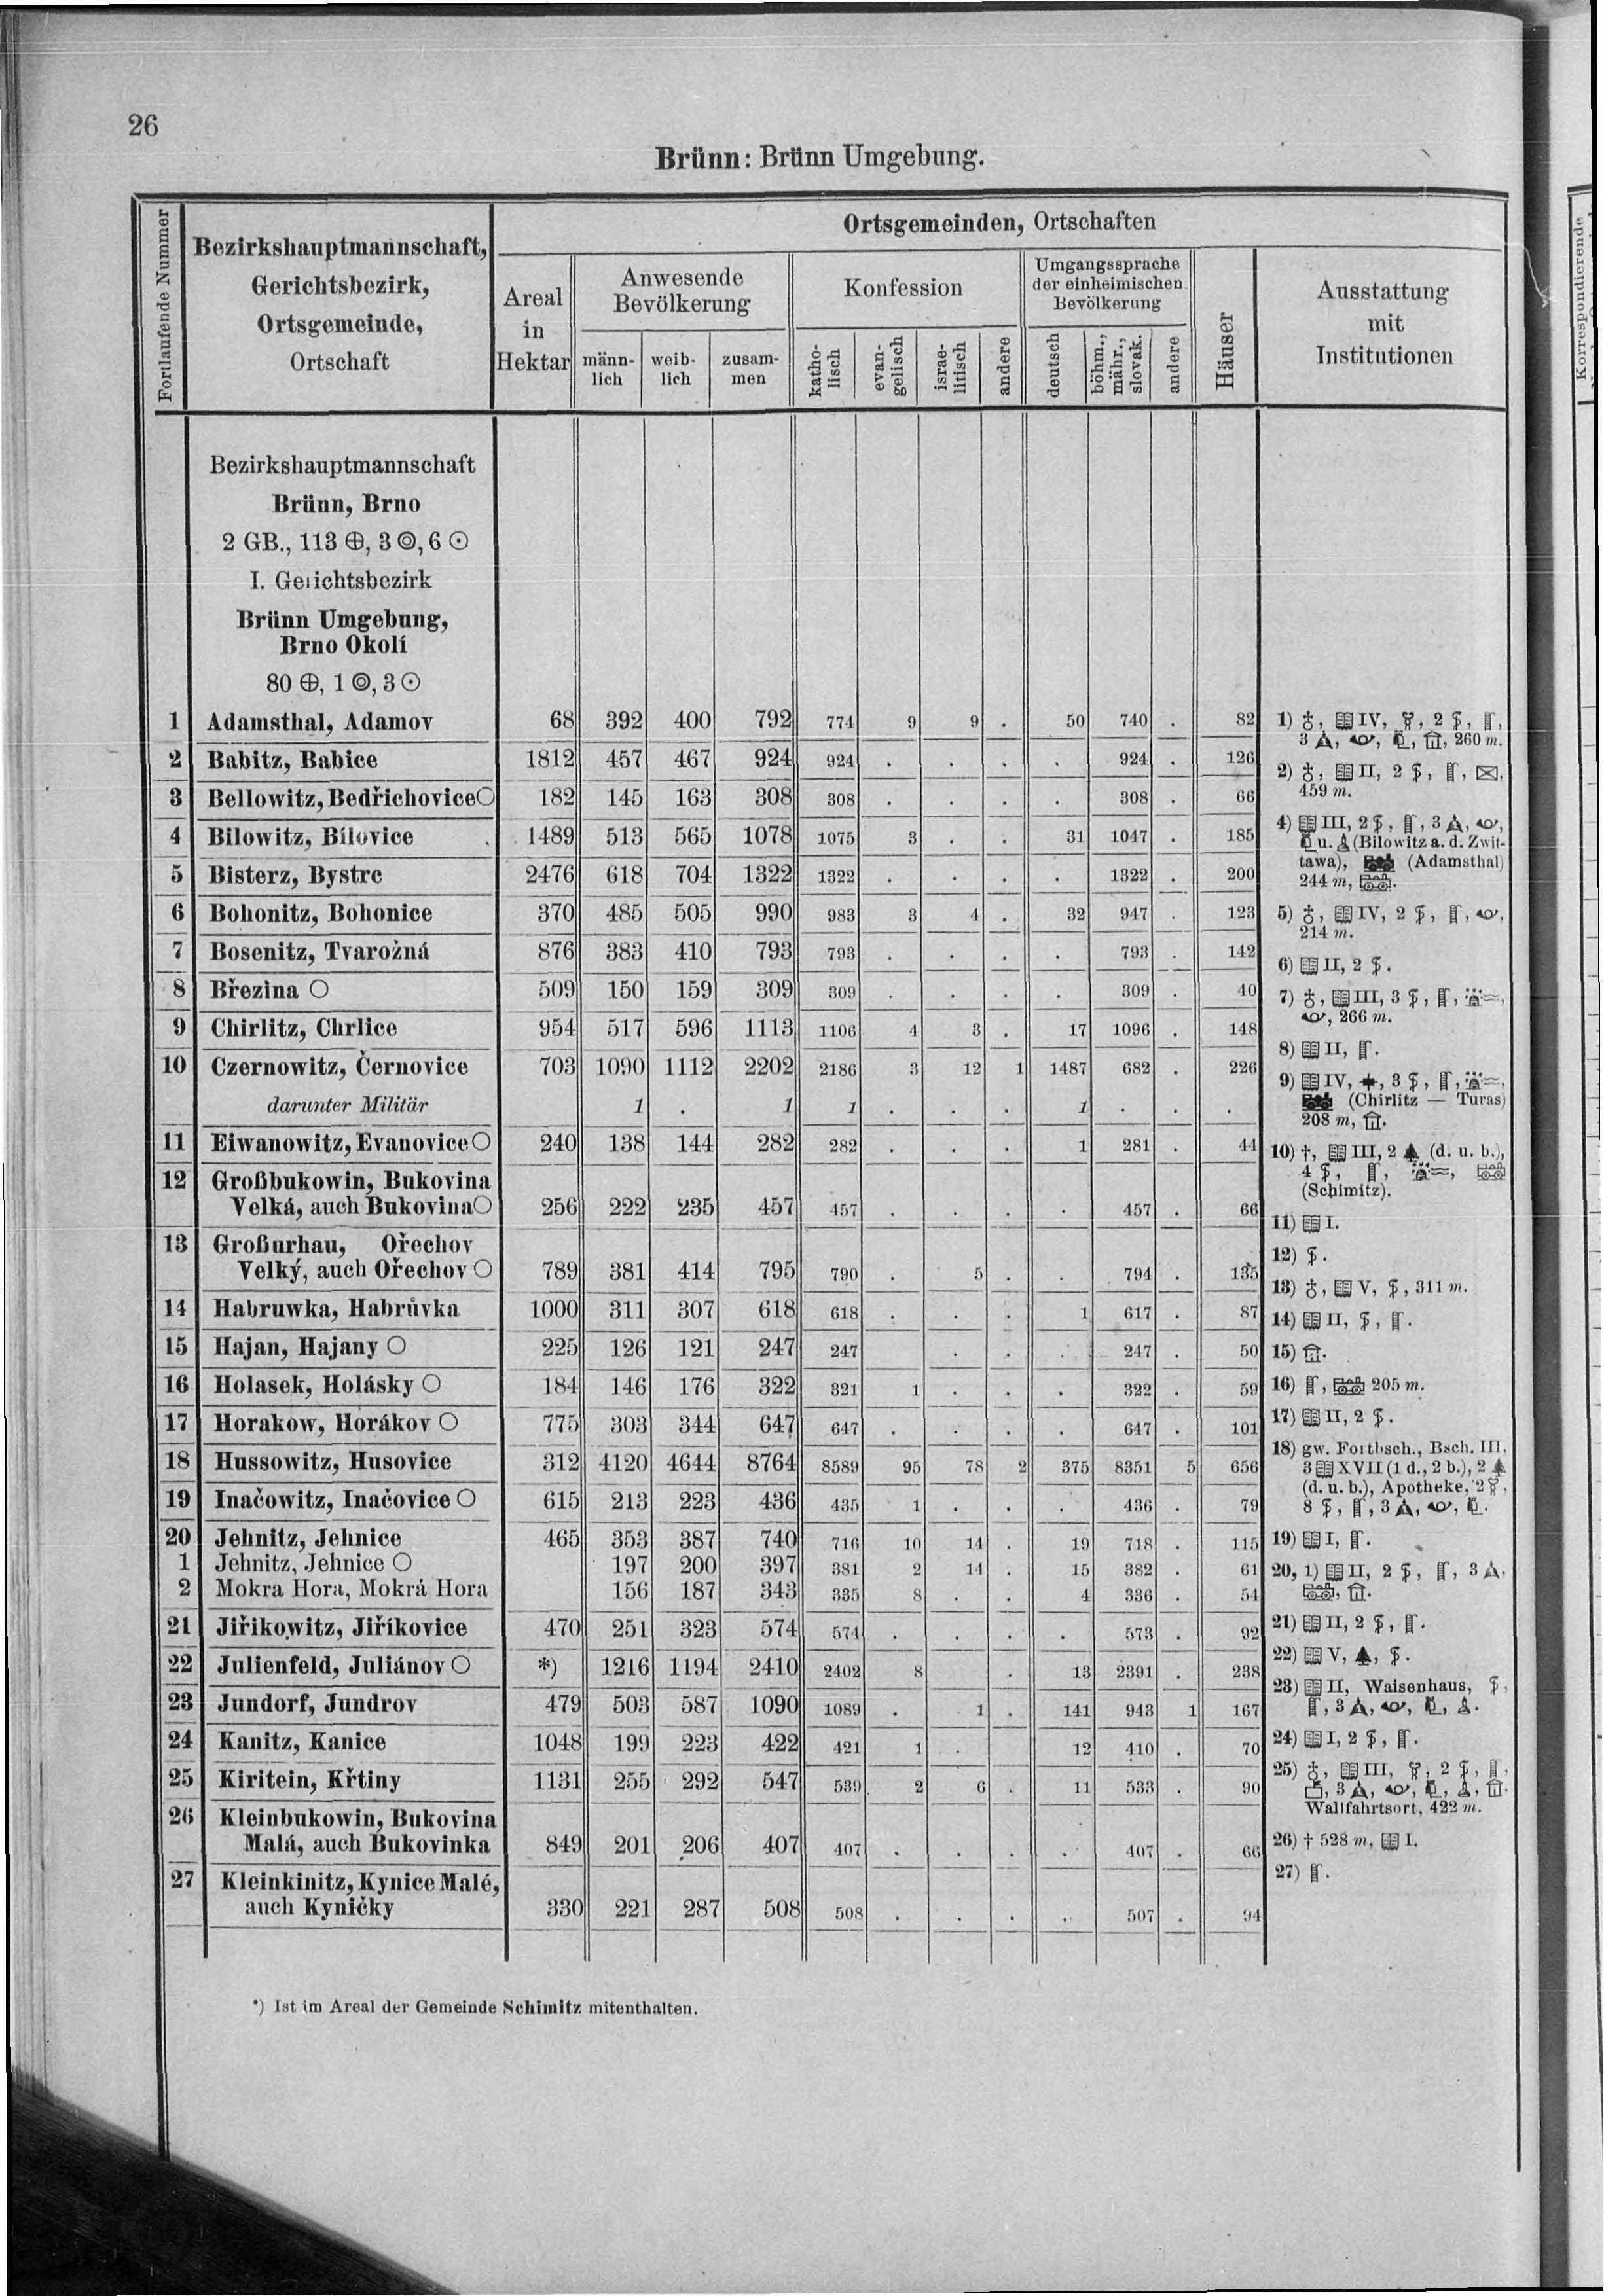 26
Brünn: Brünn Umgebung.
Fortlaufende Nummer
Bezirkshauptmannschaft,
Gerichtsbezirk,
Ortsgemeinde,
Ortschaft
Ortsgemeinden, Ortschaften
Areal
in
Hektar
Anwesende
Bevölkerung
männ-
lich
weib-
lich
zusam-
men
Konfession
katho-
lisch
evan-
gelisch
israe-
litisch
andere
Umgangssprache
der einheimischen
Bevölkerung
deutsch
böhm.,
mähr.,
slovak.
andere
Häuser
Ausstattung
mit
Institutionen
Bezirkshauptmannschaft
Brünn, Brno
2 GB., 113 ⊕, 3 ◎, 6 ⊙
I. Gerichtsbezirk
Brünn Umgebung,
Brno Okolí
80 ⊕, 1 ◎, 3 ⊙
1 Adamsthal, Adamov 68 392 400 792 774 9 9 . 50 740 . 82
2 Babitz, Babice 1812 457 467 924 924 . . . . 924 . 126
3 Bellowitz, Bedřichovice ○ 182 145 163 308 308 . . . . 308 . 66
4 Bilowitz, Bílovice 1489 513 565 1078 1075 3 . . 31 1047 . 185
5 Bisterz, Bystrc 2476 618 704 1322 1322 . . . . 1322 . 200
6 Bohonitz, Bohonice 370 485 505 990 983 3 4 . 32 947 . 123
7 Bosenitz, Tvarožná 876 383 410 793 793 . . . . 793 . 142
8 Březina ○ 509 150 159 309 309 . . . . 309 . 40
9 Chirlitz, Chrlice 954 517 596 1113 1106 4 3 . 17 1096 . 148
10 Czernowitz, Černovice 703 1090 1112 2202 2186 3 12 1 1487 682 . 226
darunter Militär 1 . 1 1 . . . 1 . . .
11 Eiwanowitz, Evanovice ○ 240 138 144 282 282 . . . 1 281 . 44
12 Großbukowin, Bukovina
Velká, auch Bukovina ○ 256 222 235 457 457 . . . . 457 . 66
13 Großurhau, Ořechov
Velký, auch Ořechov ○ 789 381 414 795 790 . 5 . . 794 . 135
14 Habruwka, Habrůvka 1000 311 307 618 618 . . . 1 617 . 87
15 Hajan, Hajany ○ 225 126 121 247 247 . . . 247 . 50
16 Holasek, Holásky ○ 184 146 176 322 321 1 . . . 322 . 59
17 Horakow, Horákov ○ 775 303 344 647 647 . . . . 647 . 101
18 Hussowitz, Husovice 312 4120 4644 8764 8589 95 78 2 375 8351 5 656
19 Inačowitz, Inačovice ○ 615 213 223 436 435 1 . . . 436 . 79
20 Jehnitz, Jehnice 465 353 387 740 716 10 14 . 19 718 . 115
1 Jehnitz, Jehnice ○ 197 200 397 381 2 14 . 15 382 . 61
2 Mokra Hora, Mokrá Hora 156 187 343 335 8 . . 4 336 . 54
21 Jiřikowitz, Jiříkovice 470 251 323 574 574 . . . . 573 . 92
22 Julienfeld, Juliánov ○ *) 1216 1194 2410 2402 8 . 13 2391 . 238
23 Jundorf, Jundrov 479 503 587 1090 1089 . 1 . 141 943 1 167
24 Kanitz, Kanice 1048 199 223 422 421 1 . 12 410 . 70
25 Kiritein, Křtiny 1131 255 292 547 539 2 6 . 11 533 . 90
26 Kleinbukowin, Bukovina
Malá, auch Bukovinka 849 201 206 407 407 . . . . 407 . 66
27 Kleinkinitz, Kynice Malé,
auch Kyničky 330 221 287 508 508 . . . . 507 . 94
1) IV, 2
3 260 m.
2) II, 2
459 m.
4) III, 2 3
u. (Bilowitz a. d. Zwit-
tawa), (Adamsthal)
244 m,
5) IV, 2
214 m.
6) II, 2
7) III, 3
266 m.
8) II,
9) IV, 3
(Chirlitz — Turas)
208 m,
10) †, III, 2 (d. u. b.),
4
(Schimitz).
11) I.
12)
13) V, 311 m.
14) II,
15)
16) 205 m.
17) II, 2
18) gw. Fortbsch., Bsch. III,
3 XVII (1 d., 2 b.), 2
(d. u. b.), Apotheke, 2
8 3
19) I,
20, 1) II, 2 3
21) II, 2
22) V,
23) II, Waisenhaus,
3
24) I, 2
25) III, 2
3
Wallfahrtsort, 422 m.
26) † 528 m, I.
27)
*) Ist im Areal der Gemeinde Schimitz mitenthalten.
Korrespondierende